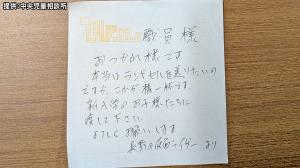 提供・中央児童相談所
職員様
おつかれ様です
本当はランドセルを送りたいので
すが、これが精一杯です。
新入学のお子様たちに
渡して下さい。
よろしくお願いします
長野の仮面ライダーより